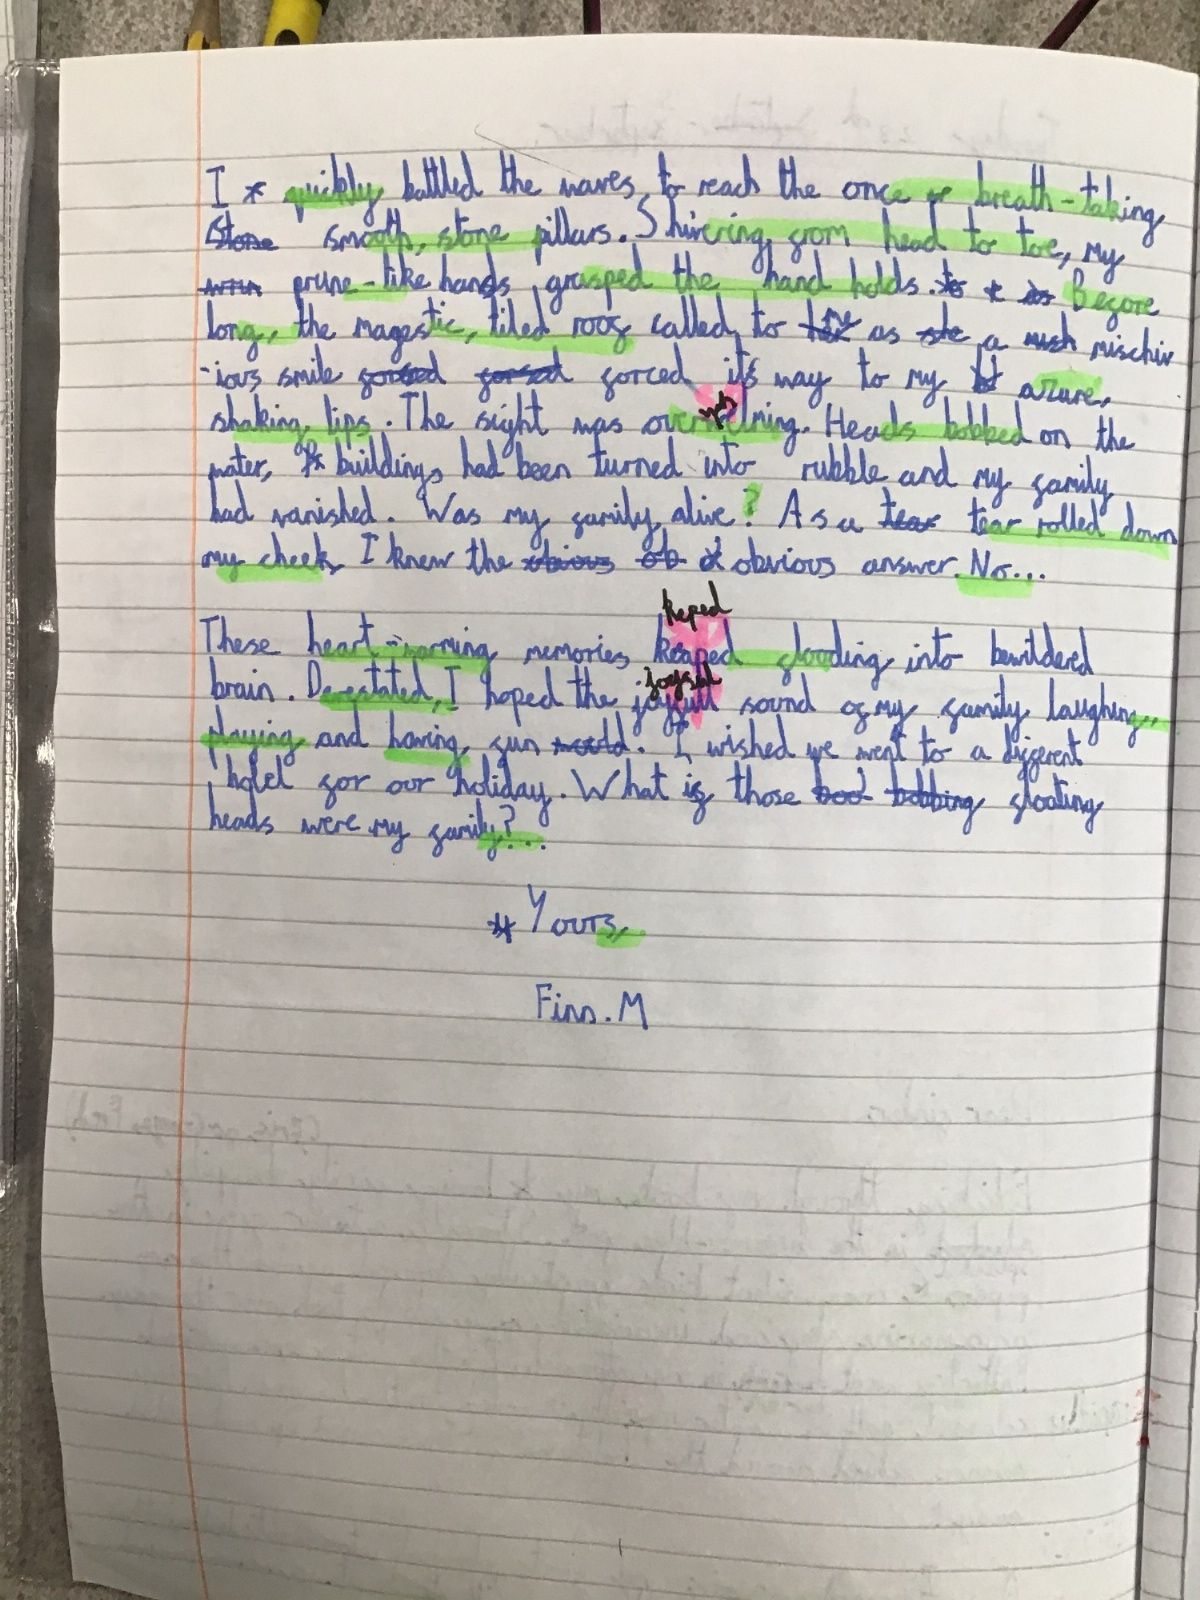 I * quickly battled the waves, to reach the once breath-taking,
Stone smooth, stone pillars. Shivering from head to toe, my
prune-like hands grasped the hand holds. Before
long, the magestic, tiled roof called to me as a mischiv
-ious smile forced forced it's way to my azure,
shaking lips. The sight was overwhelming. Heads bobbed on the
water, buildings had been turned into rubble and my family
had vanished. Was my family alive? As a tear tear rolled down
my cheek, I knew the obvious ob obvious answer. No...
keped
These heart-warming memories keaped flooding into bewildered
joyful
brain. Devestated, I hoped the joyfull sound of my family laughing,
playing and having fun would. I wished we went to a different
hotel for our holiday. What if those bobbing floating
heads were my family?...
* Yours,
Finn. M